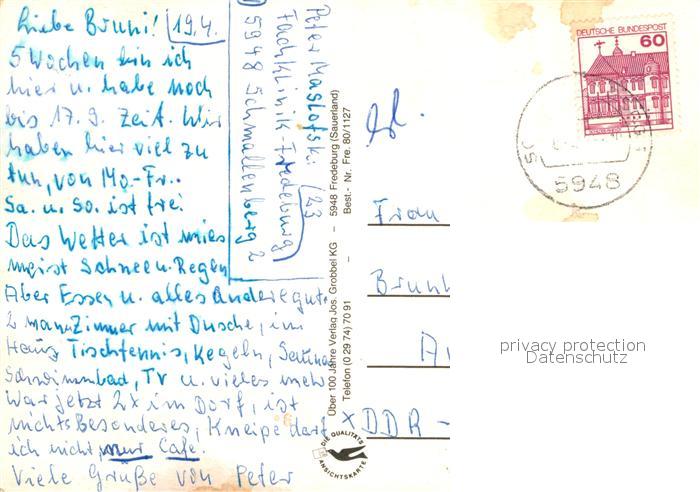 Liebe Bruni! 19.4.
5 Wochen bin ich
hier u. habe noch
bis 17.9. Zeit. Wir
haben hier viel zu
tun, von Mo.-Fr..
Sa. u. So. ist frei.
Das Wetter ist mies
meist Schnee u. Regen
Aber Essen u. alles Andere gut.
2 mann Zimmer mit Dusche, im
Haus Tischtennis, Kegeln, Sauna
Schwimmbad, TV u. vieles mehr
War jetzt 2x im Dorf, ist
nichts Besonderes, Kneipe darf
ich nicht, nur Cafe.
Viele Grüße von Peter
Peter Maslofski
Fachklinik Fredeburg /23
5948 Schmallenberg 2
Über 100 Jahre Verlag Jos. Grobbel KG – 5948 Fredeburg (Sauerland)
Telefon (0 29 74) 70 91 – Best.- Nr. Fre. 80/1127
DIE QUALITÄTS
ANSICHTSKARTE
DEUTSCHE BUNDESPOST
60
5948
Frau
Brunh
x DDR -
privacy protection
Datenschutz